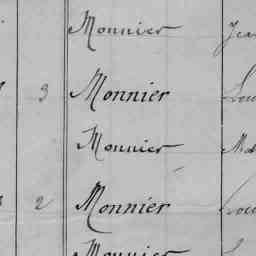 Monnier
3 Monnier
Monnier
2 Monnier
Monnier